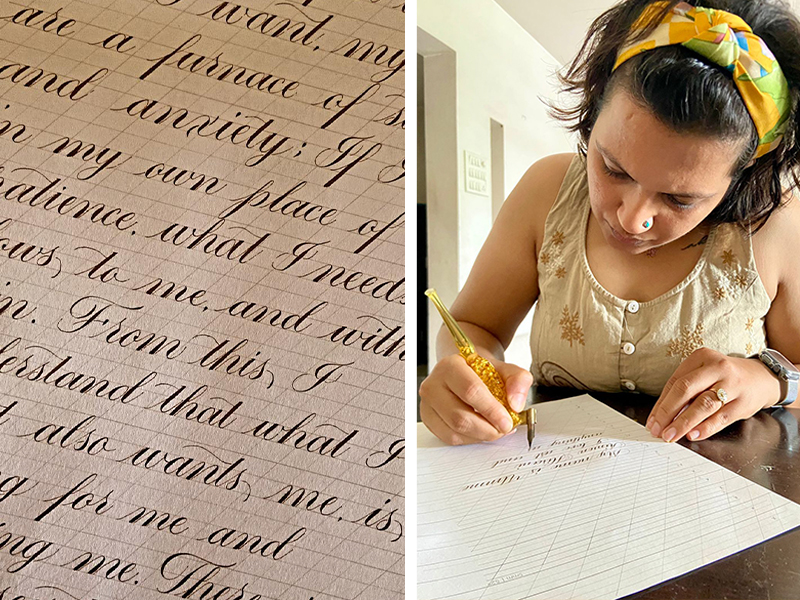 I want, my
are a furnace of s
and anxiety; If I
in my own place of
patience, what I need
ows, to me, and with
in. From this, I
derstand that what I
t also wants, me, is,
g for me and
ing me. There
My name is